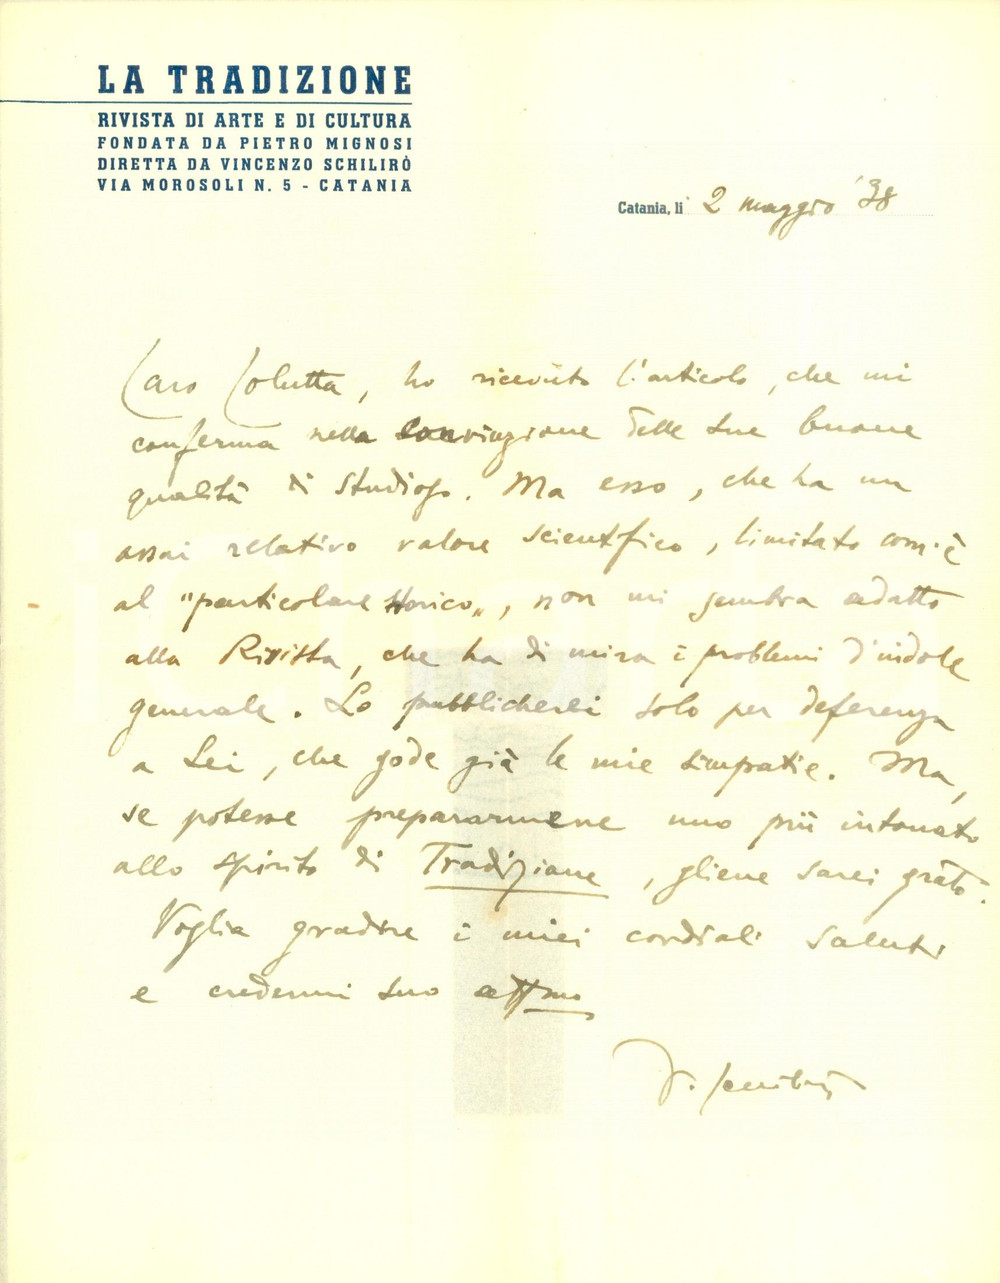 LA TRADIZIONE
RIVISTA DI ARTE E DI CULTURA
FONDATA DA PIETRO MIGNOSI
DIRETTA DA VINCENZO SCHILIRÒ
VIA MOROSOLI N. 5 - CATANIA
Catania, li 2 maggio '38
Caro Colutta, ho ricevuto l'articolo, che mi
conferma nella convinzione delle sue buone
qualità di studioso. Ma esso, che ha un
assai relativo valore scientifico, limitato com'è
al "particolare storico", non mi sembra adatto
alla Rivista, che ha di mira i problemi d'indole
generale. Lo pubblicherei solo per deferenza
a Lei, che gode già le mie simpatie. Ma,
se potesse prepararmene uno più intonato
allo spirito di Tradizione, gliene sarei grato.
Voglia gradire i miei cordiali saluti
e credermi suo aff.mo
V. Schilirò